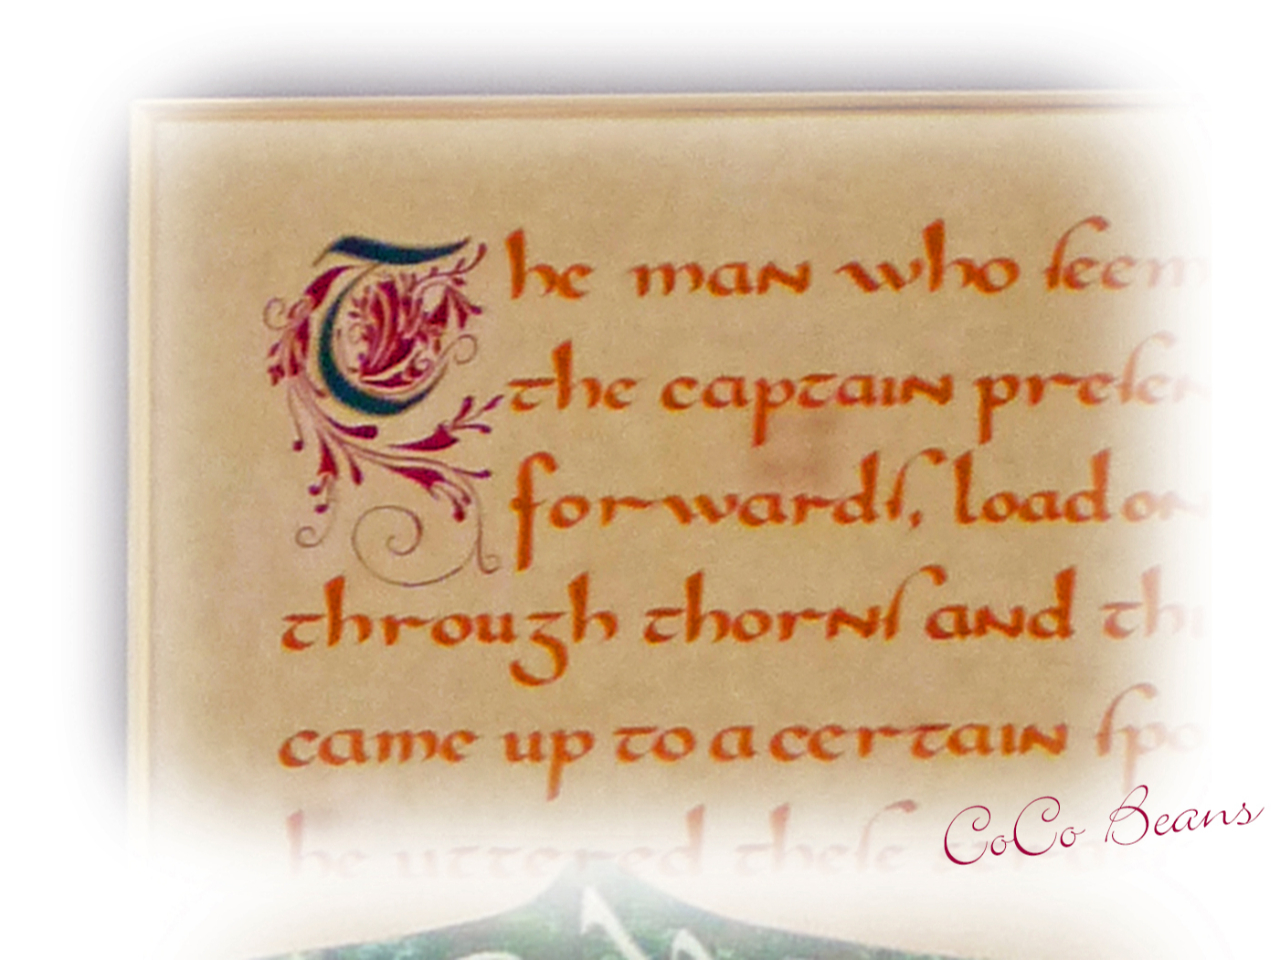 The man who ſeem
the captain preſen
forwardſ, load on
through thornſ and th
came up to a certain ſpo
he uttered theſe
CoCo Beans